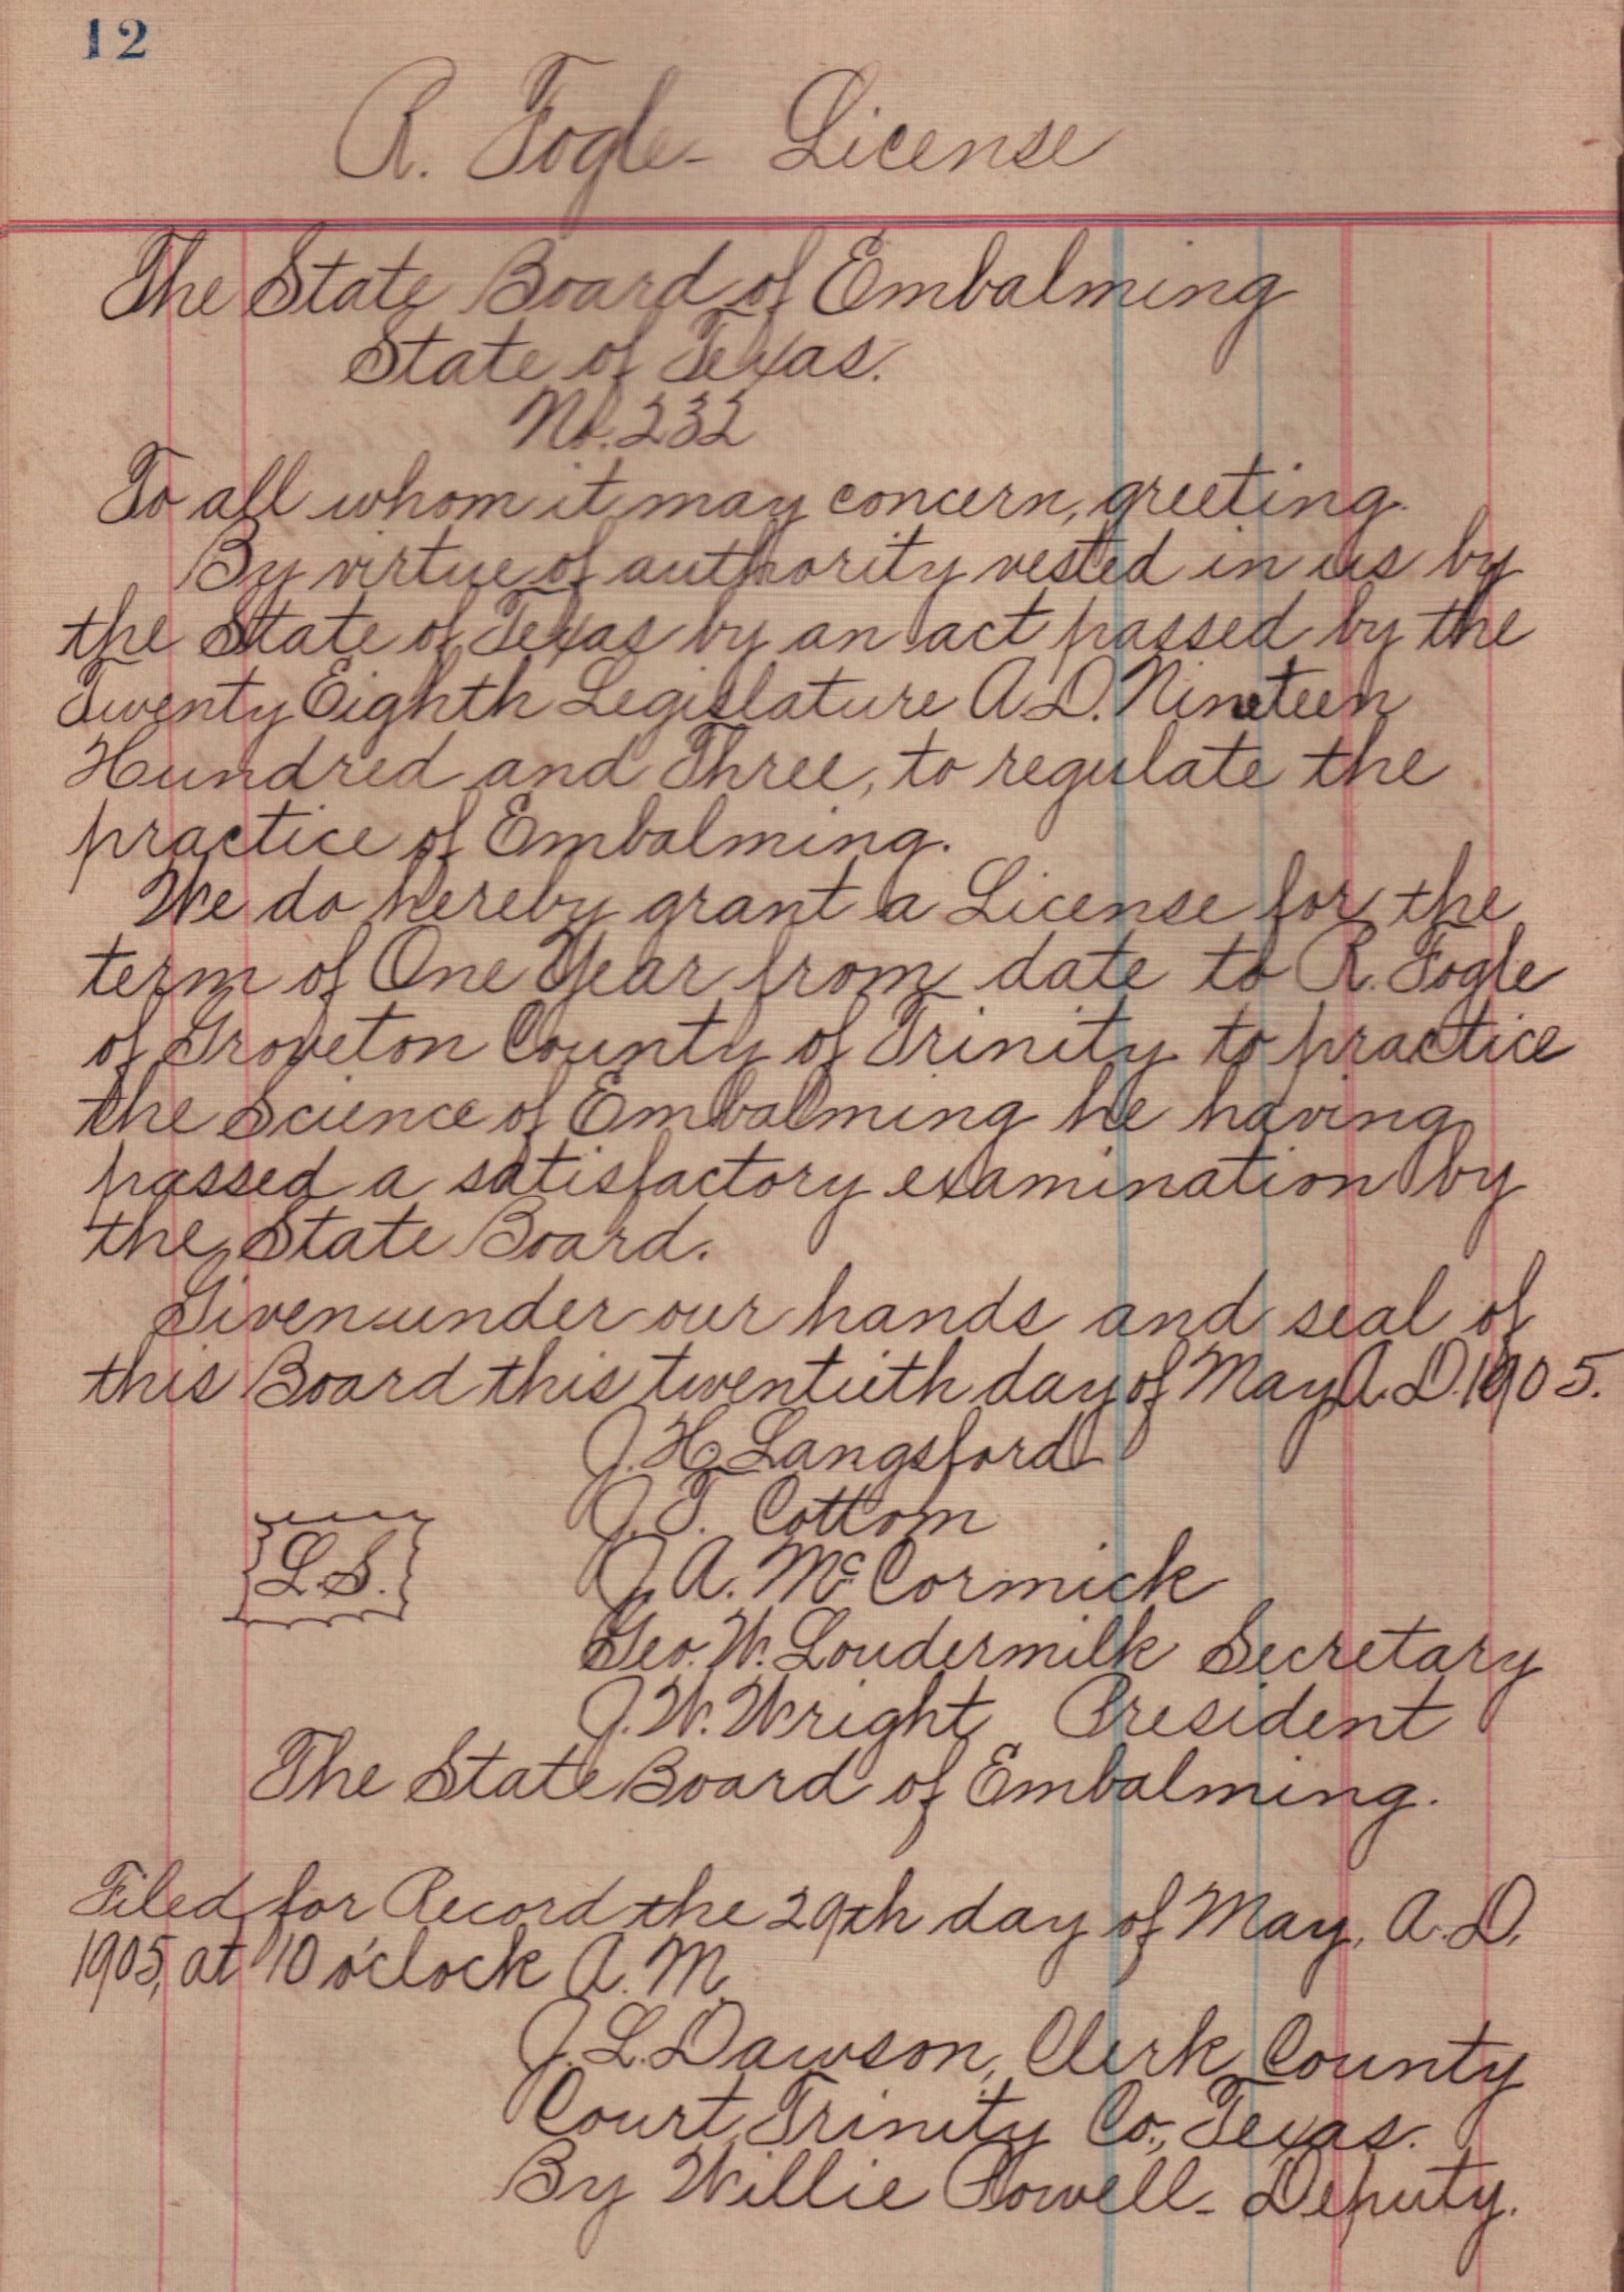 12
R. Fogle - License
The State Board of Embalming
State of Texas.
No. 232
To all whom it may concern, greeting.
By virtue of authority vested in us by
the State of Texas by an act passed by the
Twenty Eighth Legislature A.D. Nineteen
Hundred and Three, to regulate the
practice of Embalming.
We do hereby grant a License for the
term of One Year from date to R. Fogle
of Groveton County of Trinity to practice
the Science of Embalming he having
passed a satisfactory examination by
the State Board.
Given under our hands and seal of
this Board this twentieth day of May A.D. 1905.
J. H. Langsford
J. T. Cottom
L.S.
J. A. McCormick
Geo. W. Loudermilk Secretary
J. W. Wright President
The State Board of Embalming.
Filed for Record the 29th day of May, A.D.
1905, at 10 o'clock A.M.
J. L. Dawson, Clerk County
Court, Trinity Co., Texas.
By Willie Powell - Deputy.